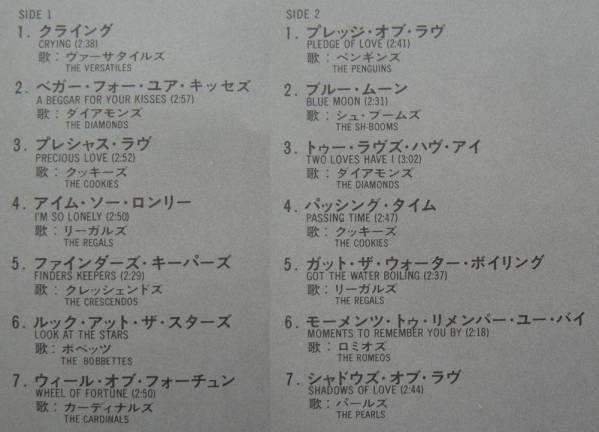 SIDE 1
1. クライング
CRYING (2:38)
歌：ヴァーサタイルズ
THE VERSATILES
2. ベガー・フォー・ユア・キッセズ
A BEGGAR FOR YOUR KISSES (2:57)
歌：ダイアモンズ
THE DIAMONDS
3. プレシャス・ラヴ
PRECIOUS LOVE (2:52)
歌：クッキーズ
THE COOKIES
4. アイム・ソー・ロンリー
I'M SO LONELY (2:50)
歌：リーガルズ
THE REGALS
5. ファインダーズ・キーパーズ
FINDERS KEEPERS (2:29)
歌：クレッシェンドズ
THE CRESCENDOS
6. ルック・アット・ザ・スターズ
LOOK AT THE STARS
歌：ボベッツ
THE BOBBETTES
7. ウィール・オブ・フォーチュン
WHEEL OF FORTUNE (2:50)
歌：カーディナルズ
THE CARDINALS
SIDE 2
1. プレッジ・オブ・ラヴ
PLEDGE OF LOVE (2:41)
歌：ペンギンズ
THE PENGUINS
2. ブルー・ムーン
BLUE MOON (2:31)
歌：シュ・ブームズ
THE SH-BOOMS
3. トゥー・ラヴズ・ハヴ・アイ
TWO LOVES HAVE I (3:02)
歌：ダイアモンズ
THE DIAMONDS
4. パッシング・タイム
PASSING TIME (2:47)
歌：クッキーズ
THE COOKIES
5. ガット・ザ・ウォーター・ボイリング
GOT THE WATER BOILING (2:37)
歌：リーガルズ
THE REGALS
6. モーメンツ・トゥ・リメンバー・ユー・バイ
MOMENTS TO REMEMBER YOU BY (2:18)
歌：ロミオズ
THE ROMEOS
7. シャドウズ・オブ・ラヴ
SHADOWS OF LOVE (2:44)
歌：パールズ
THE PEARLS